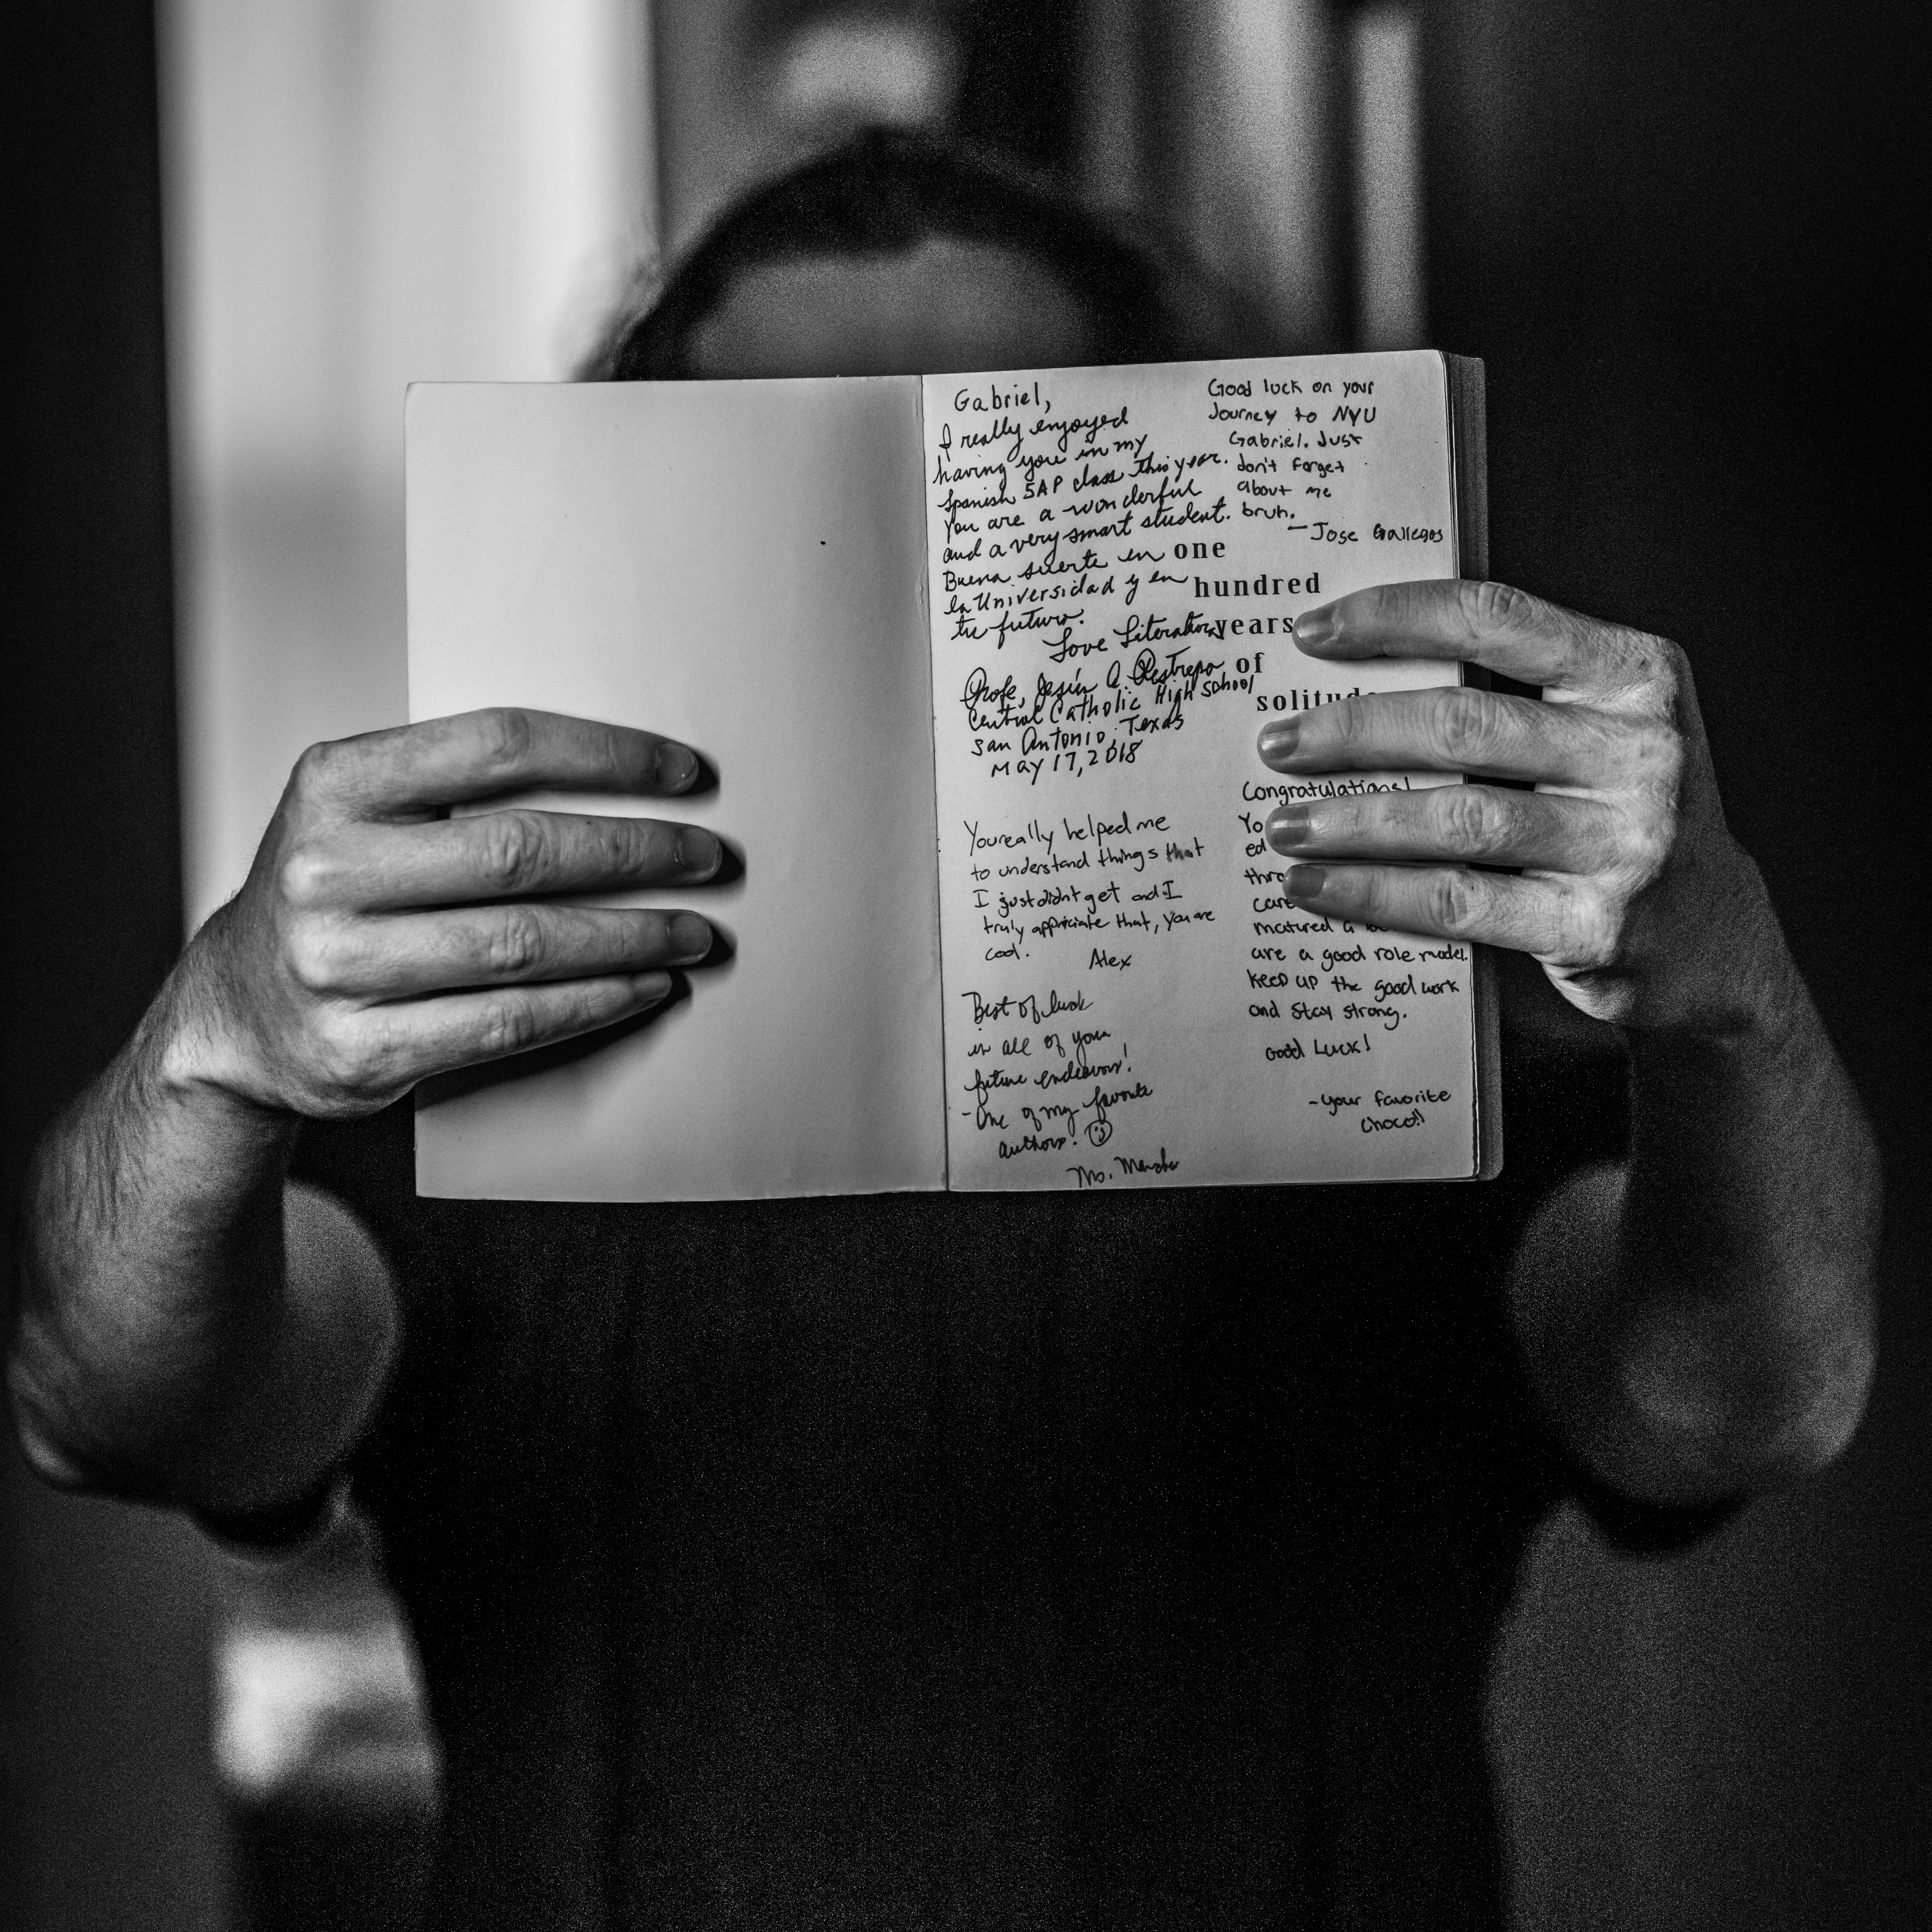 Gabriel,
I really enjoyed
having you in my
Spanish 5AP class this year.
You are a wonderful
and a very smart student.
Buena suerte en
la Universidad y en
tu futuro.
Love Literature,
Profe, Jesús A Restrepo
Central Catholic High School
San Antonio, Texas
May 17, 2018
Good luck on your
Journey to NYU
Gabriel. Just
don't forget
about me
bruh.
- Jose Gallegos
one
hundred
years
of
solitude
You really helped me
to understand things that
I just didnt get and I
truly appriciate that, you are
cool.
Alex
Best of luck
in all of your
future endeavors!
- One of my favorite
authors.
Ms.
Congratulations!
Yo
ed
thro
care
matured a
are a good role model.
keep up the good work
and stay strong.
Good Luck!
- your favorite
choco!!